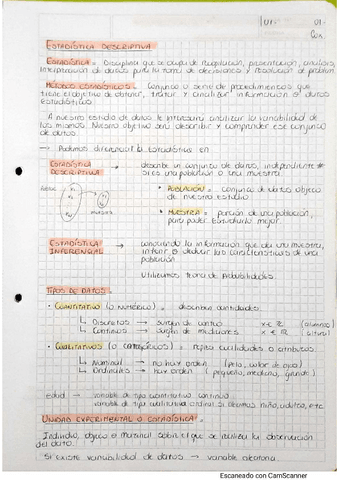 U1 - 01-
ESTADÍSTICA DESCRIPTIVA
ESTADÍSTICA = Disciplina que se ocupa de recopilación, presentación, análisis,
interpretación de datos para la toma de decisiones y resolución de problem.
MÉTODOS ESTADÍSTICOS = Conjunto o serie de procedimientos que
tiene el objetivo de obtener, tratar y analizar información o datos
estadísticos
A nuestro estudio de datos le interesará analizar la variabilidad de
los mismos. Nuestro objetivo será describir y comprender ese conjunto
de datos.
→ Podemos diferenciar la estadística en
ESTADÍSTICA DESCRIPTIVA → describe un conjunto de datos, independiente #
si es una población o una muestra.
• POBLACIÓN = conjunto de datos objeto
de nuestro estudio
muestra
• MUESTRA = porción de una población,
para poder estudiarlo mejor.
ESTADÍSTICA INFERENCIAL → conociendo la información que da una muestra,
inferir o deducir las características de una
población
Utilizamos teoría de probabilidades.
TIPOS DE DATOS =
• CUANTITATIVO (o NUMÉRICO) = describen cantidades.
↳ Discretos → surgen de conteo x ∈ Z (alumnos)
↳ Continuos → surgen de mediciones x ∈ R (altura)
• CUALITATIVOS (o CATEGÓRICOS) = registro cualidades o atributos.
↳ Nominal → no hay orden (pelo, color de ojos)
↳ Ordinales → hay orden (pequeño, mediano, grande)
edad → variable de tipo cuantitativo continuo
variable de tipo cualitativa ordinal si decimos niño, adulto, etc
UNIDAD EXPERIMENTAL O ESTADÍSTICA =
Individuo, objeto o material sobre el que se realiza la observación
del dato.
Si existe variabilidad de datos → variable aleatoria.
Escaneado con CamScanner